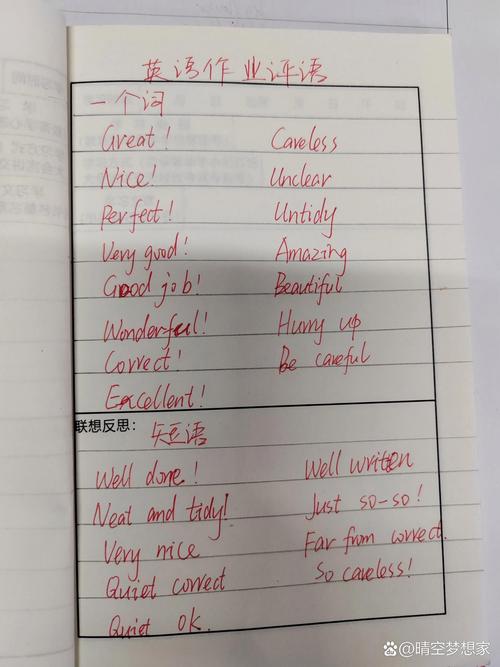 英语作业评语
一个词
Great! Careless
Nice! Unclear
Perfect! Untidy
Very good! Amazing
Good job! Beautiful
Wonderful! Hurry up
Correct! Be careful
Excellent!
联想反思: 短语
Well done! Well writen
Neat and tidy! Just so-so!
Very nice Far from correct.
Quiet correct So careless!
Quiet ok.
@晴空梦想家